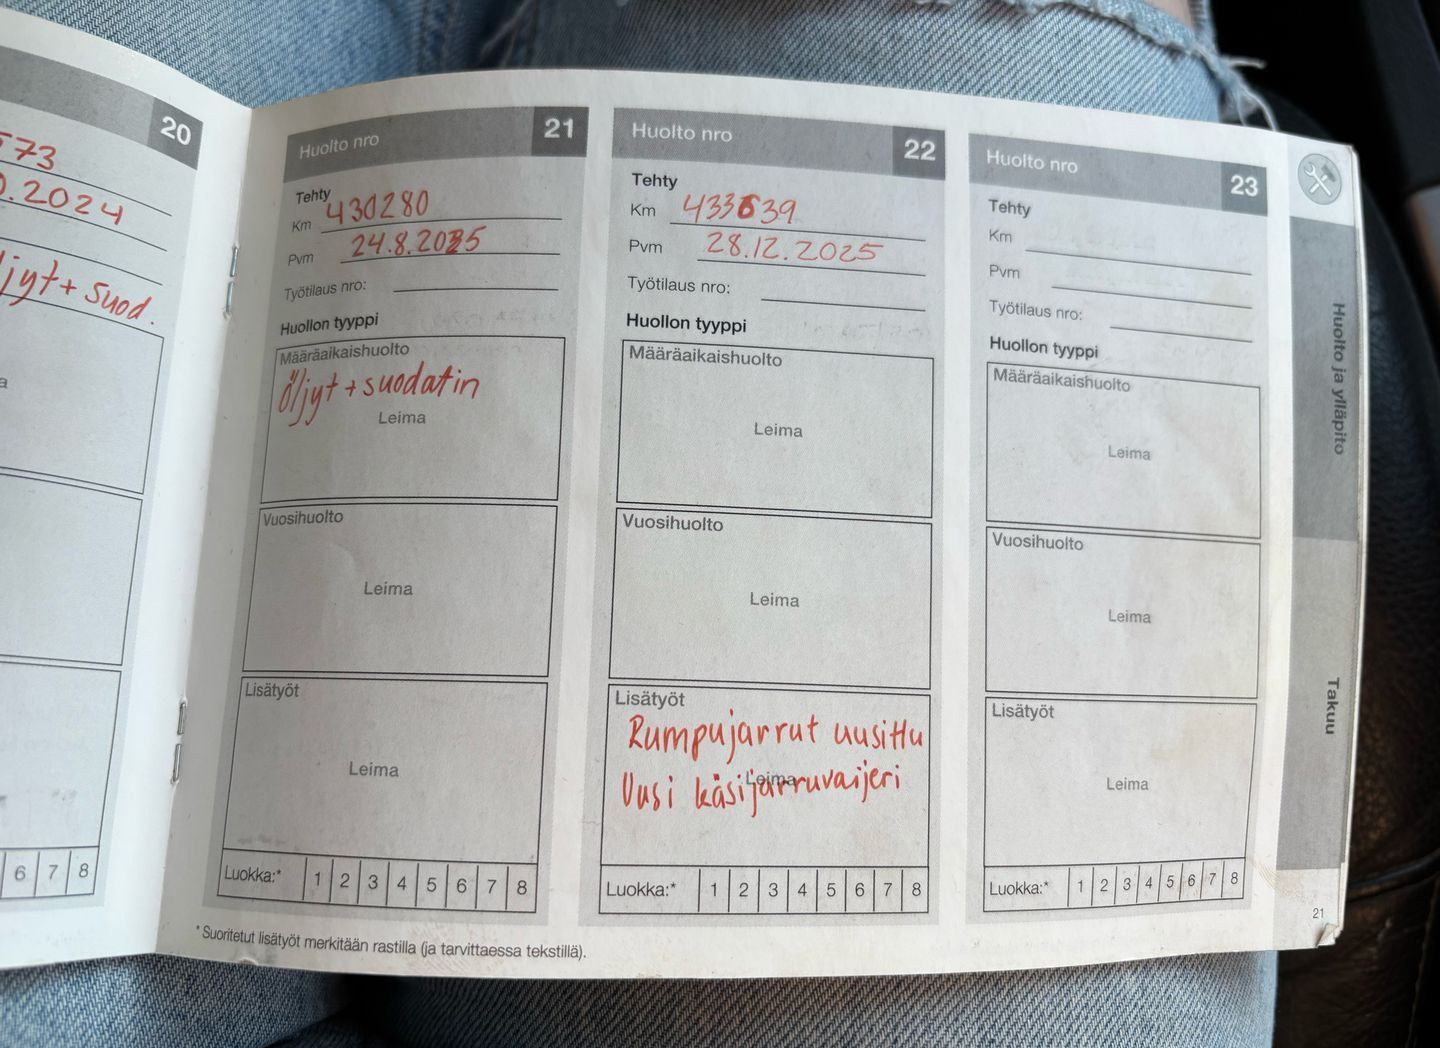 20
573
.2024
jyt + suod.
6 7 8
Huolto nro 21
Tehty
Km 430280
Pvm 24.8.2025
Työtilaus nro:
Huollon tyyppi
Määräaikaishuolto
öljyt + suodatin
Leima
Vuosihuolto
Leima
Lisätyöt
Leima
Luokka:* 1 2 3 4 5 6 7 8
Huolto nro 22
Tehty
Km 433639
Pvm 28.12.2025
Työtilaus nro:
Huollon tyyppi
Määräaikaishuolto
Leima
Vuosihuolto
Leima
Lisätyöt
Rumpujarrut uusittu
Leima
Uusi käsijarruvaijeri
Luokka:* 1 2 3 4 5 6 7 8
Huolto nro 23
Tehty
Km
Pvm
Työtilaus nro:
Huollon tyyppi
Määräaikaishuolto
Leima
Vuosihuolto
Leima
Lisätyöt
Leima
Luokka:* 1 2 3 4 5 6 7 8
* Suoritetut lisätyöt merkitään rastilla (ja tarvittaessa tekstillä).
Huolto ja ylläpito
Takuu
21